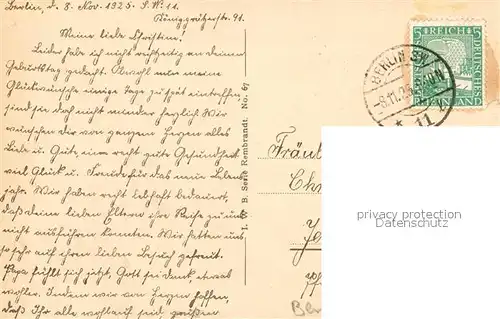 Berlin, d. 8. Nov. 1925. S.W. 11.
Königgrätzerstr. 91.
Meine liebe Christine!
Leider habe ich nicht rechtzeitig an deinen
Geburtstag gedacht. Obwohl nun meine
Glückwünsche einige Tage zu spät eintreffen,
sind sie doch nicht minder herzlich. Wir
wünschen dir von ganzem Herzen alles
Liebe u. Gute, eine recht gute Gesundheit
viel Glück u. Freude für das neue Lebens-
jahr. Wir haben recht lebhaft bedauert,
daß deine lieben Eltern ihre Reise zu uns
nicht ausführen konnten. Wir hatten uns
so sehr auf ihren lieben Besuch gefreut.
Papa fühlt sich jetzt, Gott sei dank, etwas
wohler. Indem wir von Herzen hoffen,
daß Ihr alle wohlauf seid, grüßen
I. G. B. Serie Rembrandt. No. 67
DEUTSCHES REICH
5 5
BERLIN SW
-8.11.25
* 11
Fräu
Chr
privacy protection
Datenschutz
Ber